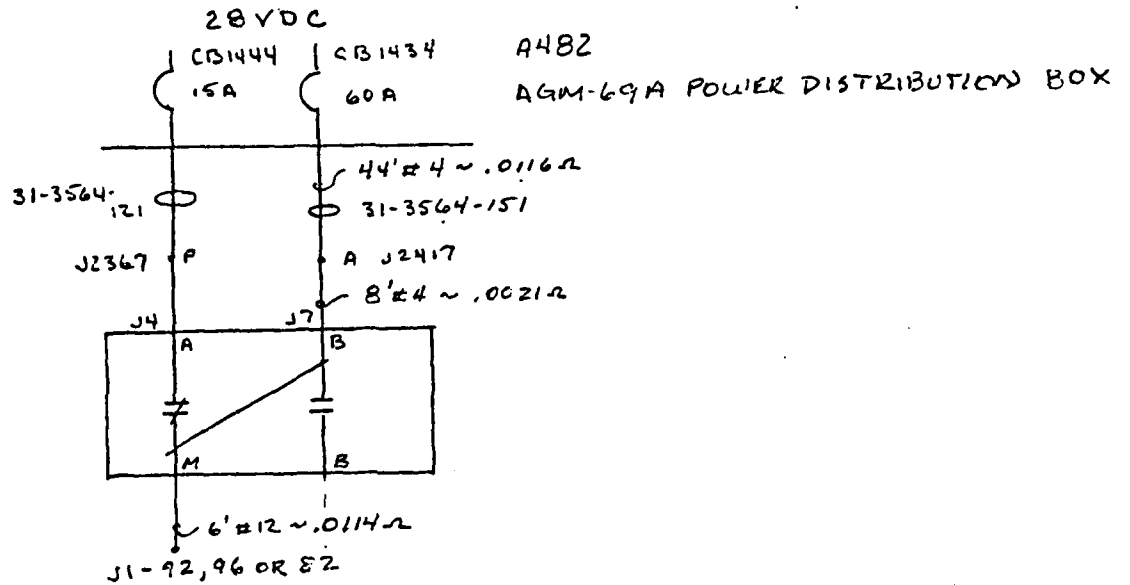 28VDC
CB1444
15A
CB1434
60A
A482
AGM-69A POWER DISTRIBUTION BOX
44' #4 ~ .0116Ω
31-3564-
121
31-3564-151
J2367 P
A J2417
8' #4 ~ .0021Ω
J4
J7
A
B
M
B
6' #12 ~ .0114Ω
J1-92,96 OR E2